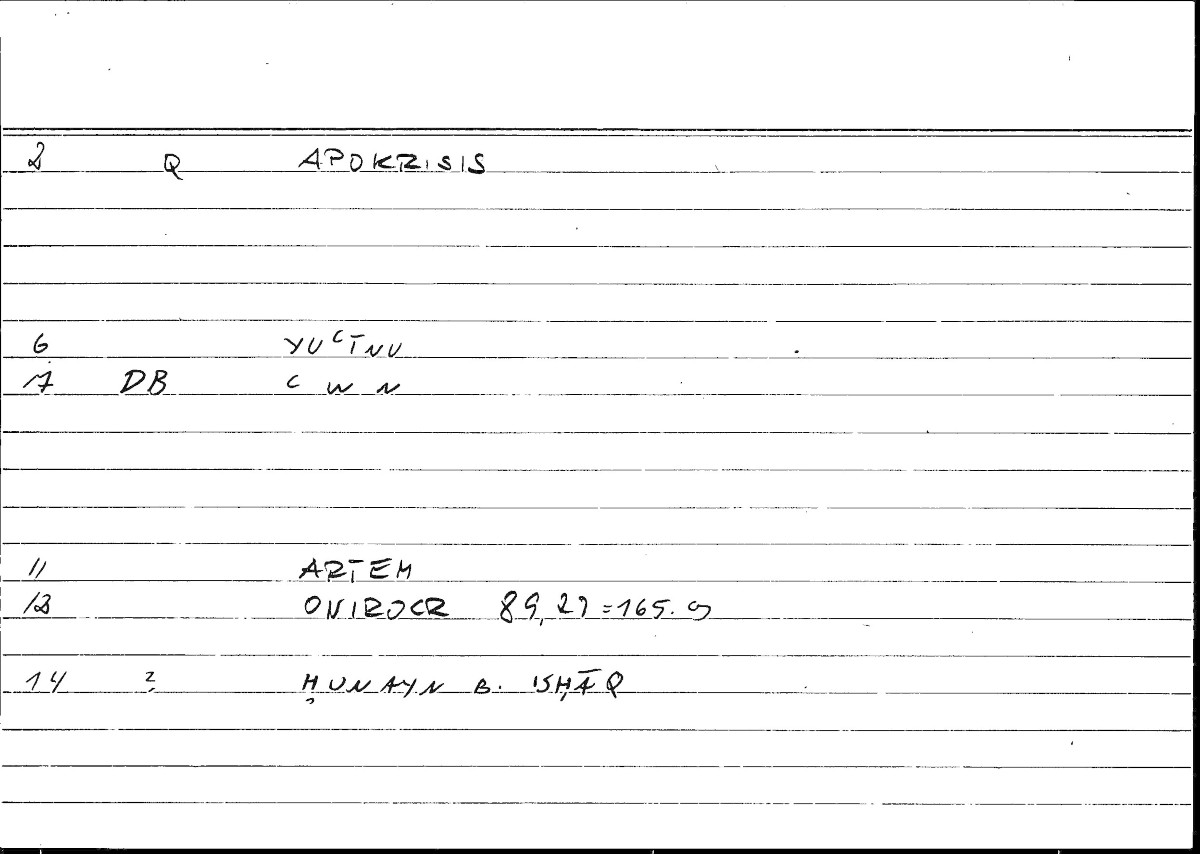 2 Q APOKRISIS
6 YUʿĪNU
7 DB ʿ W N
11 ARTEM
12 ONIROCR 89,27=165.9
14 ? ḤUNAYN B. ISḤĀQ